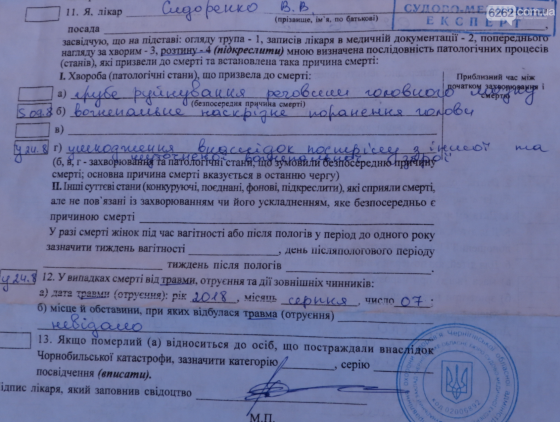 6262.com.ua
СУДОВО-МЕДИЧНИЙ
ЕКСПЕРТ
11. Я, лікар Сидоренко В.В.
(прізвище, ім'я, по батькові)
посада
засвідчую, що на підставі: огляду трупа - 1, записів лікаря в медичній документації - 2, попереднього
нагляду за хворим - 3, розтину - 4 (підкреслити) мною визначена послідовність патологічних процесів
(станів), які призвели до смерті та встановлена така причина смерті:
I. Хвороба (патологічні стани), що призвела до смерті:
Приблизний час між початком захворювання і смерті
а) грубе руйнування речовини головного мозку
(безпосередня причина смерті)
S 09.8 б) вогнепальне наскрізне поранення голови
в)
у 24.8 г) ушкодження внаслідок пострілу з іншої та
неуточненої вогнепальної зброї
(б, в, г - захворювання та патологічні стани, що зумовили безпосередню причину
смерті; основна причина смерті вказується в останню чергу)
II. Інші суттєві стани (конкуруючі, поєднані, фонові, підкреслити), які сприяли смерті,
але не пов'язані із захворюванням чи його ускладненням, яке безпосередньо є
причиною смерті
У разі смерті жінок під час вагітності або після пологів у період до одного року
зазначити тиждень вагітності , день післяпологового періоду
тиждень після пологів
у 24.8 12. У випадках смерті від травми, отруєння та дії зовнішніх чинників:
а) дата травми (отруєння): рік 2018, місяць серпня, число 07.
б) місце й обставини, при яких відбулася травма (отруєння)
невідомо
13. Якщо померлий (а) відноситься до осіб, що постраждали внаслідок
Чорнобильської катастрофи, зазначити категорію , серію
посвідчення (вписати).
ідпис лікаря, який заповнив свідоцтво
М.П.